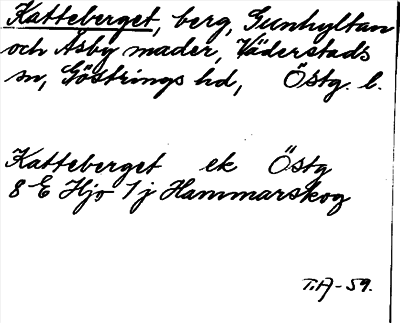 Katteberget, berg, Gunhyltan
och Åsby mader, Väderstads
sn, Göstrings hd, Östg. l.
Katteberget ek Östg
8 E Hjo 1 j Hammarskog
T.A-59.